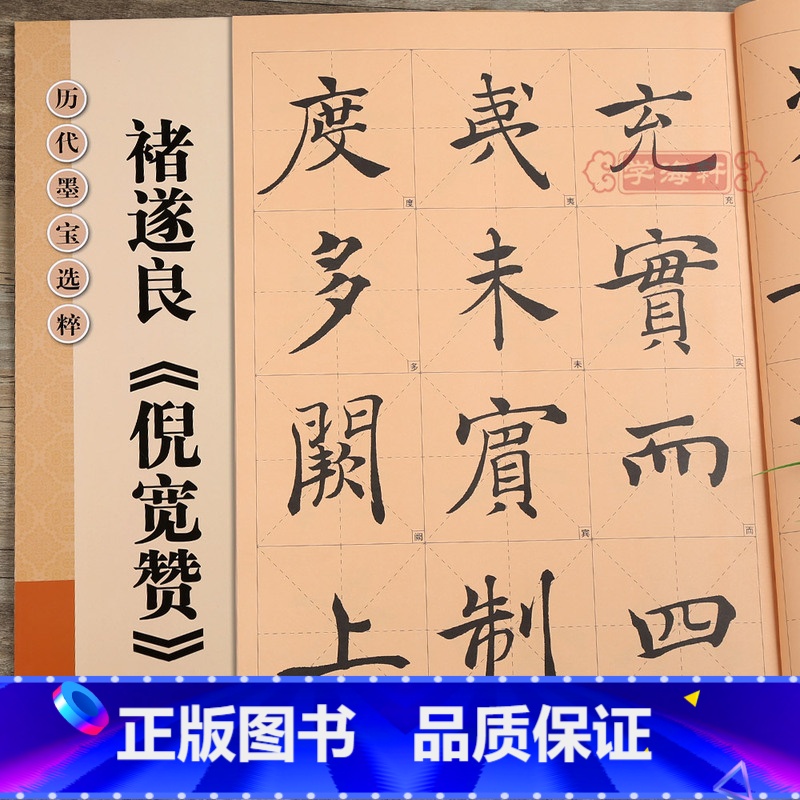 历代墨宝选粹
褚遂良《倪宽赞》
充實而四
夷未賓制
度多闕上
充
实
而
夷
未
宾
度
多
阙
学海轩
正版图书 品质保证